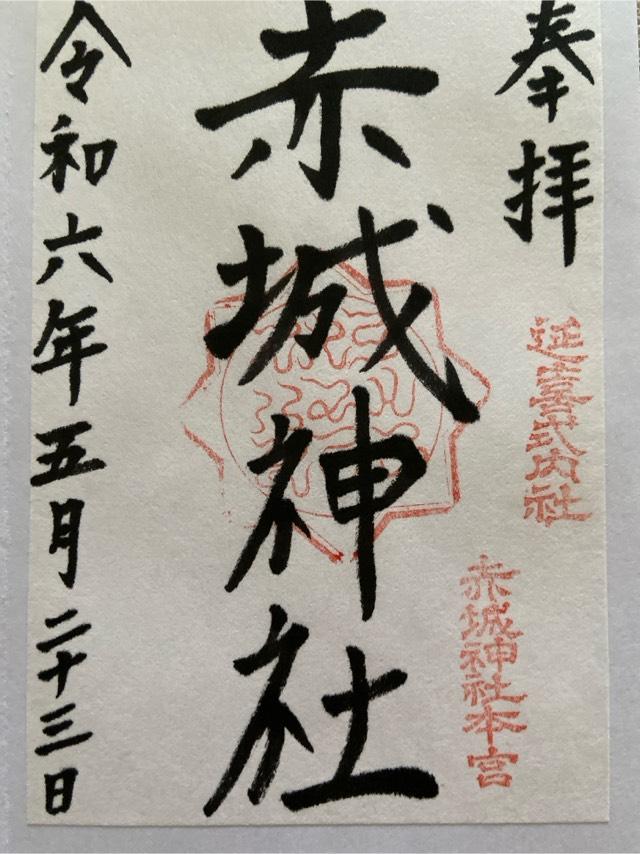 奉拝
延喜式内社
赤城神社本宮
赤城神社
令和六年五月二十三日